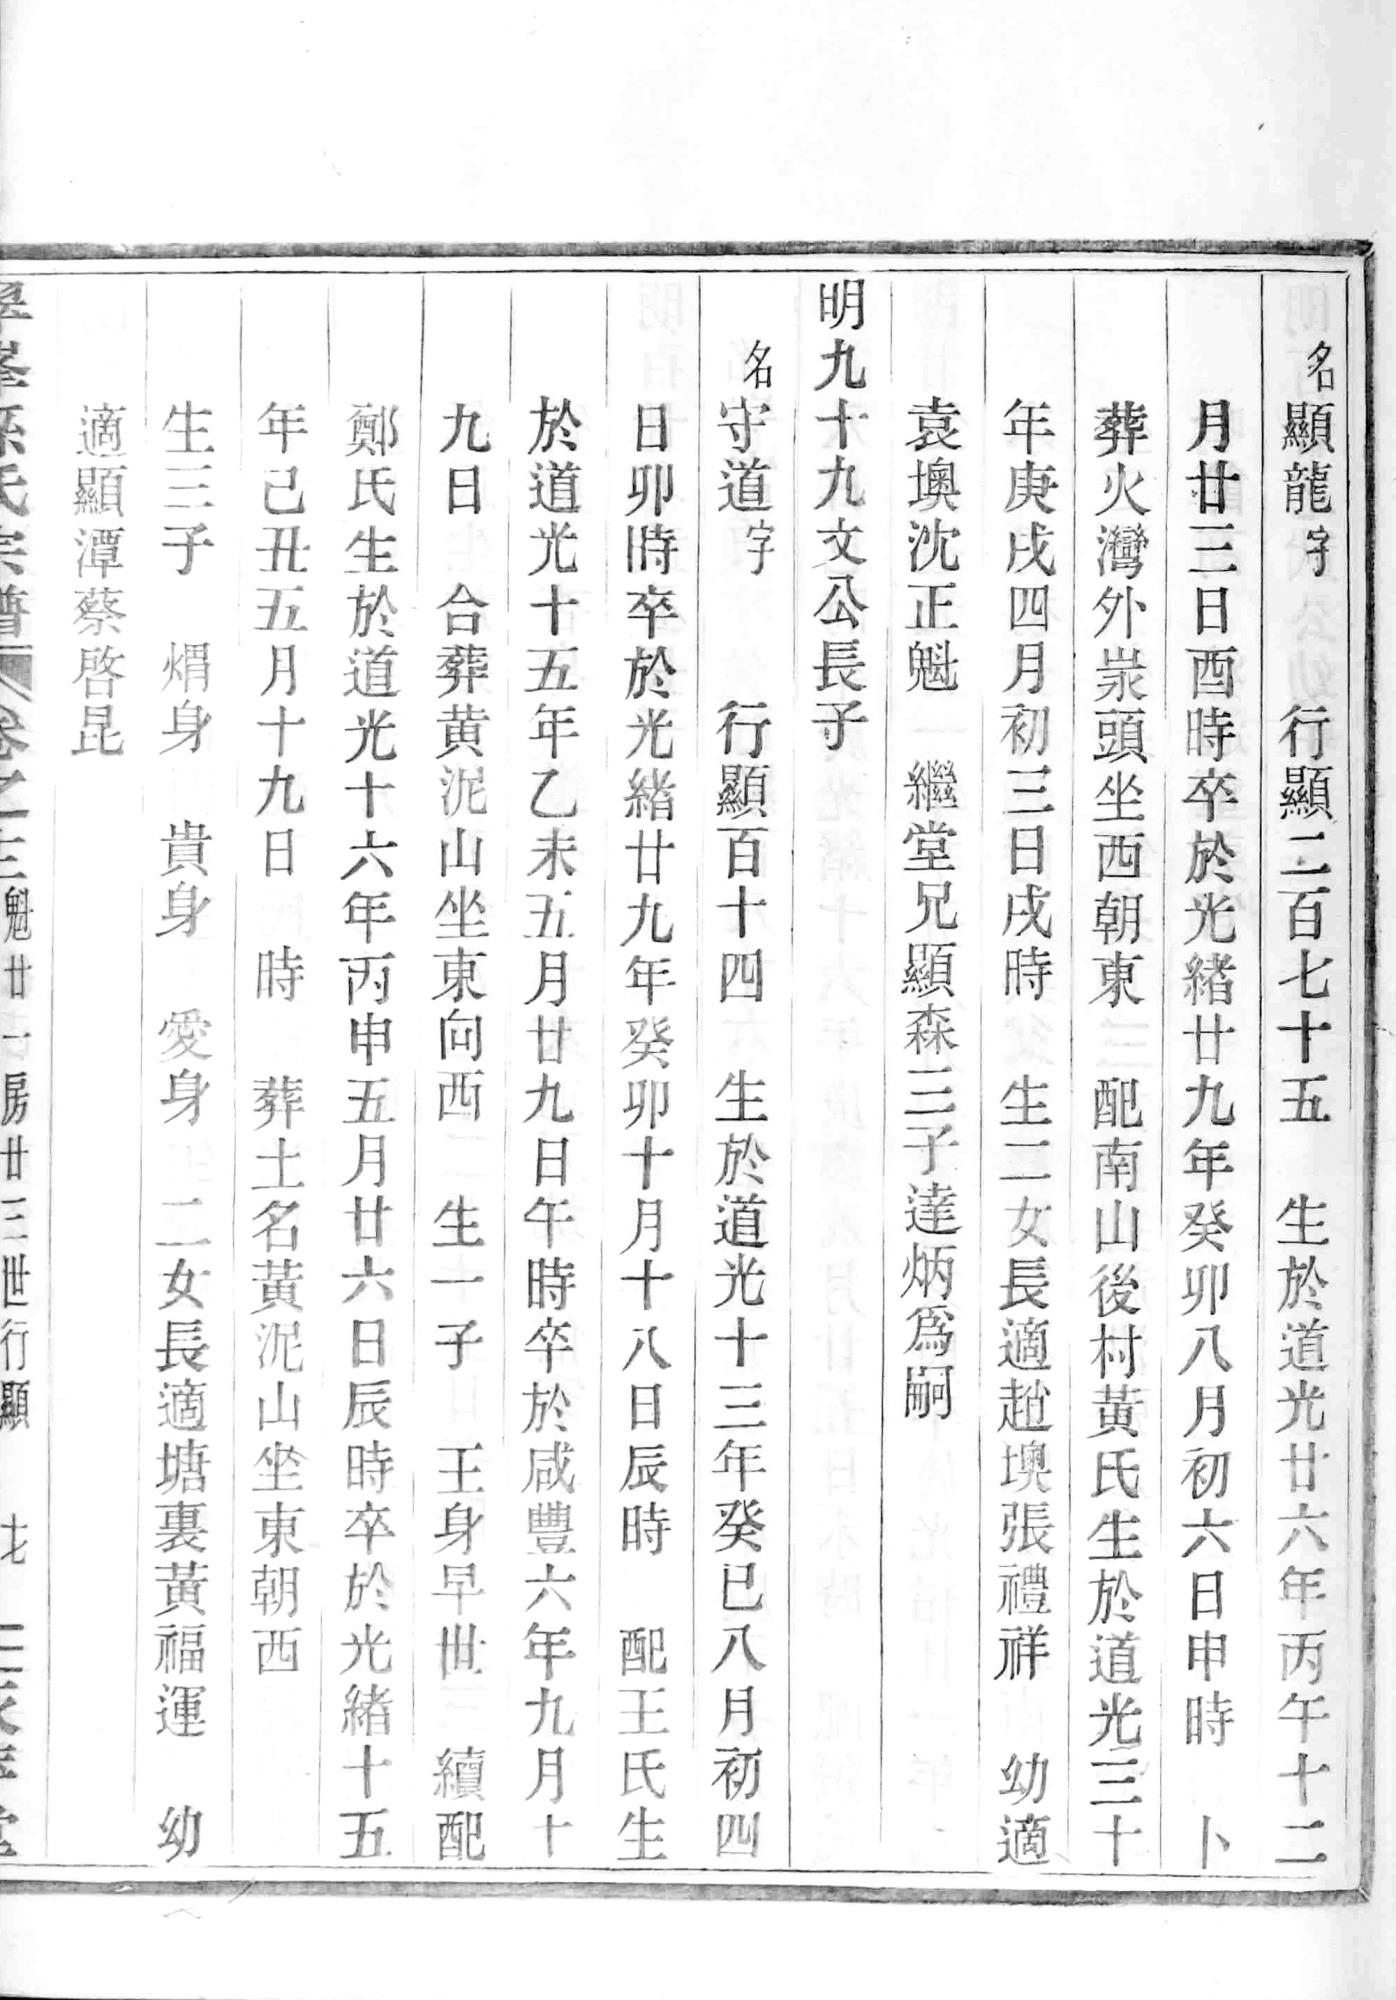 名顯龍字 行顯二百七十五 生於道光廿六年丙午十二
月廿三日酉時卒於光緒廿九年癸卯八月初六日申時 卜
葬火灣外崇頭坐西朝東 配南山後村黃氏生於道光三十
年庚戌四月初三日戌時 生二女長適趙墺張禮祥 幼適
袁墺沈正魁 繼堂兄顯森三子達炳爲嗣
明九十九文公長子
名守道字 行顯百十四 生於道光十三年癸巳八月初四
日卯時卒於光緒廿九年癸卯十月十八日辰時 配王氏生
於道光十五年乙未五月廿九日午時卒於咸豐六年九月十
九日 合葬黄泥山坐東向西 生一子 王身早世 續配
鄭氏生於道光十六年丙申五月廿六日辰時卒於光緒十五
年己丑五月十九日 時 葬土名黃泥山坐東朝西
生三子 熠身 貴身 愛身 二女長適塘裏黃福運 幼
適顯潭蔡啓昆
孫氏宗譜 卷之三 魁廿一房廿三世行顯